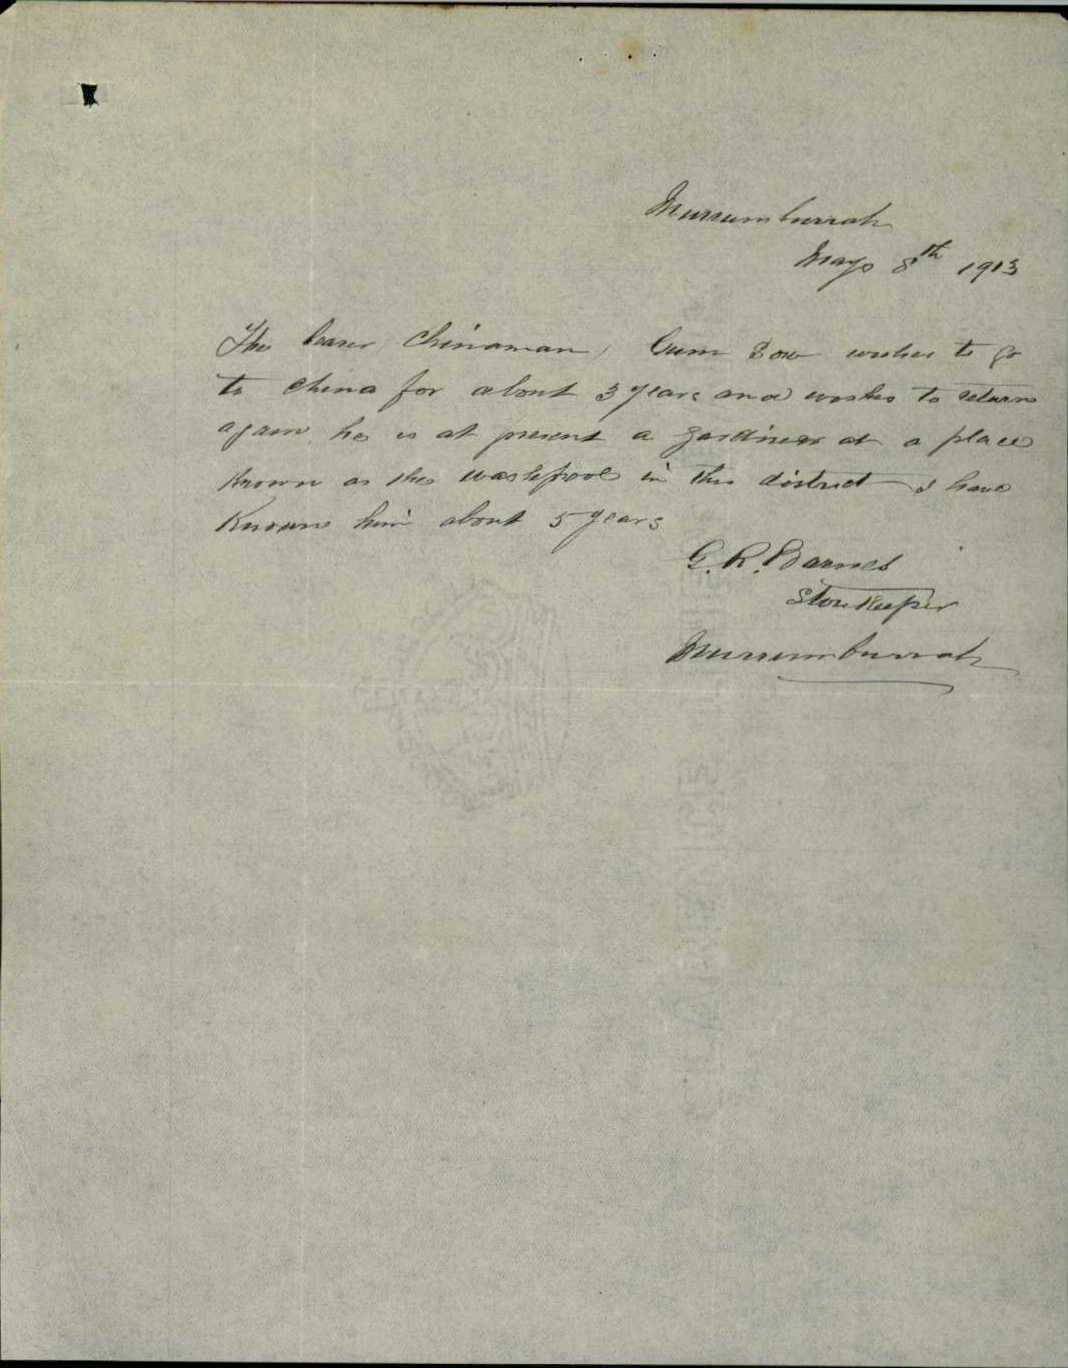 Murrumburrah
May 8th 1913
The bearer Chinaman, Gum Sow wishes to go
to China for about 3 years and wishes to return
again he is at present a gardiner at a place
known as the washpool in this district I have
Known him about 5 years
G. R. Barnes
Storekeeper
Murrumburrah